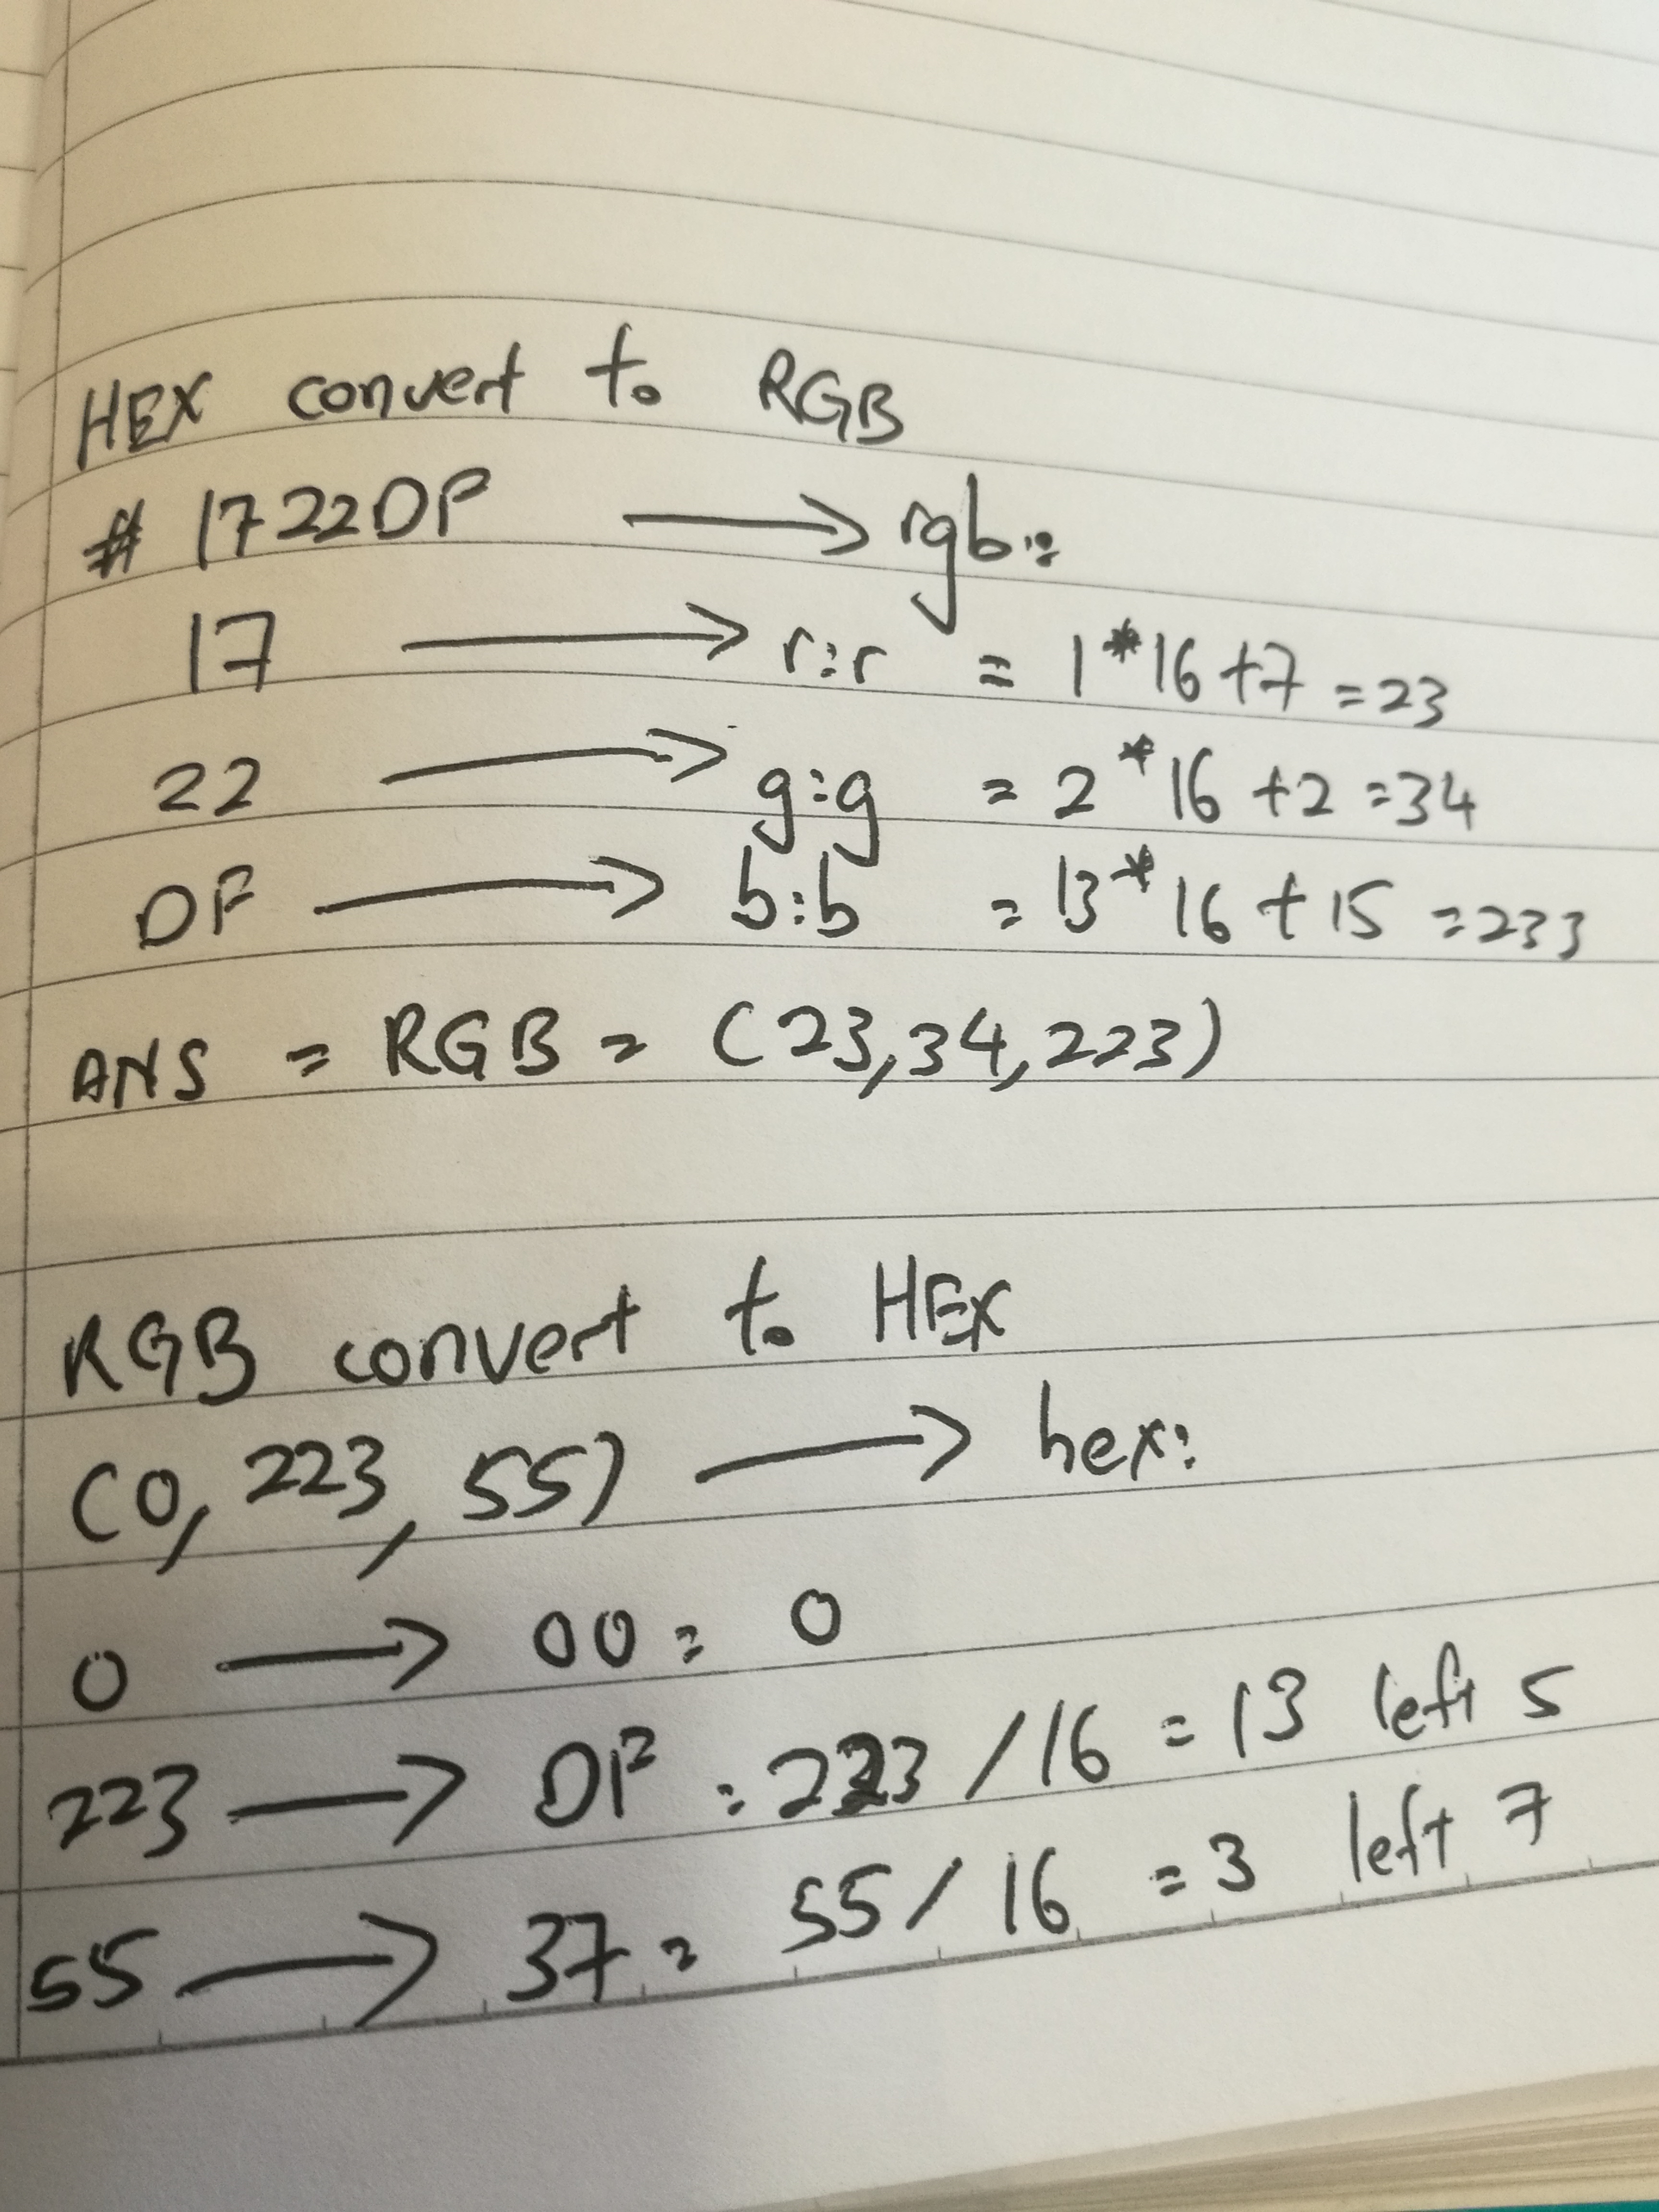 HEX convert to RGB
# 1722DF → rgb:
17 → r:r = 1*16+7 =23
22 → g:g = 2*16+2 =34
DF → b:b = 13*16+15 =233
ANS = RGB = (23,34,223)
RGB convert to HEX
(0, 223, 55) → hex:
0 → 00 = 0
223 → DF = 223/16 = 13 left 5
55 → 37 = 55/16 = 3 left 7